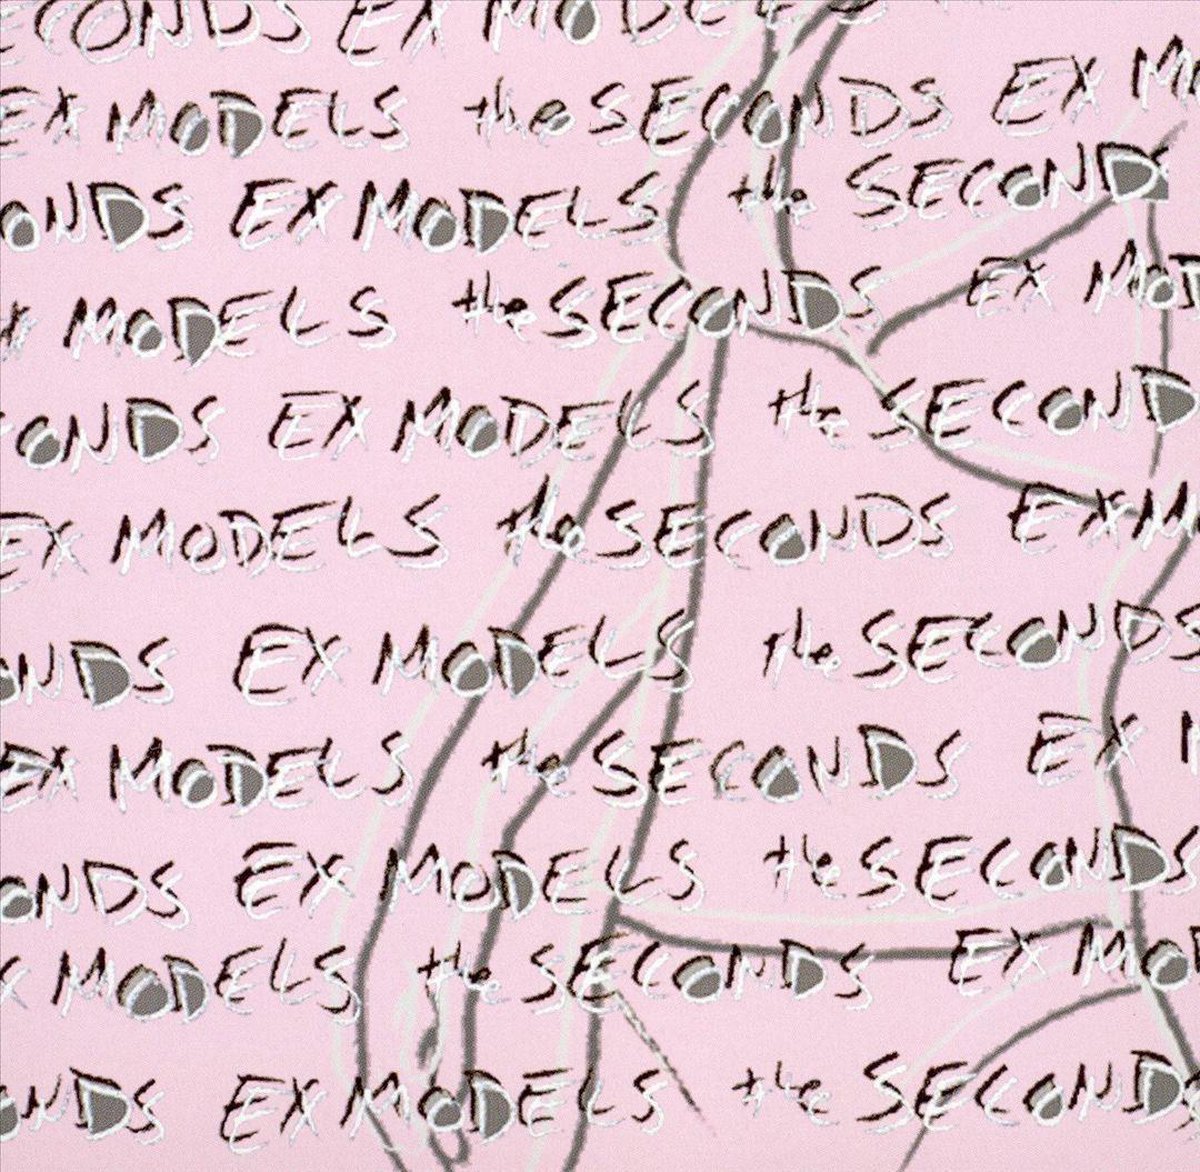 ECONDS EX MODELS
EX MODELS the SECONDS EX M
ONDS EX MODELS the SECONDS
EX MODELS the SECONDS EX MOD
CONDS EX MODELS the SECOND
EX MODELS the SECONDS EX M
ONDS EX MODELS the SECONDS
EX MODELS the SECONDS EX M
ONDS EX MODELS the SECONDS
X MODELS the SECONDS EX MOD
ONDS EX MODELS the SECONDS